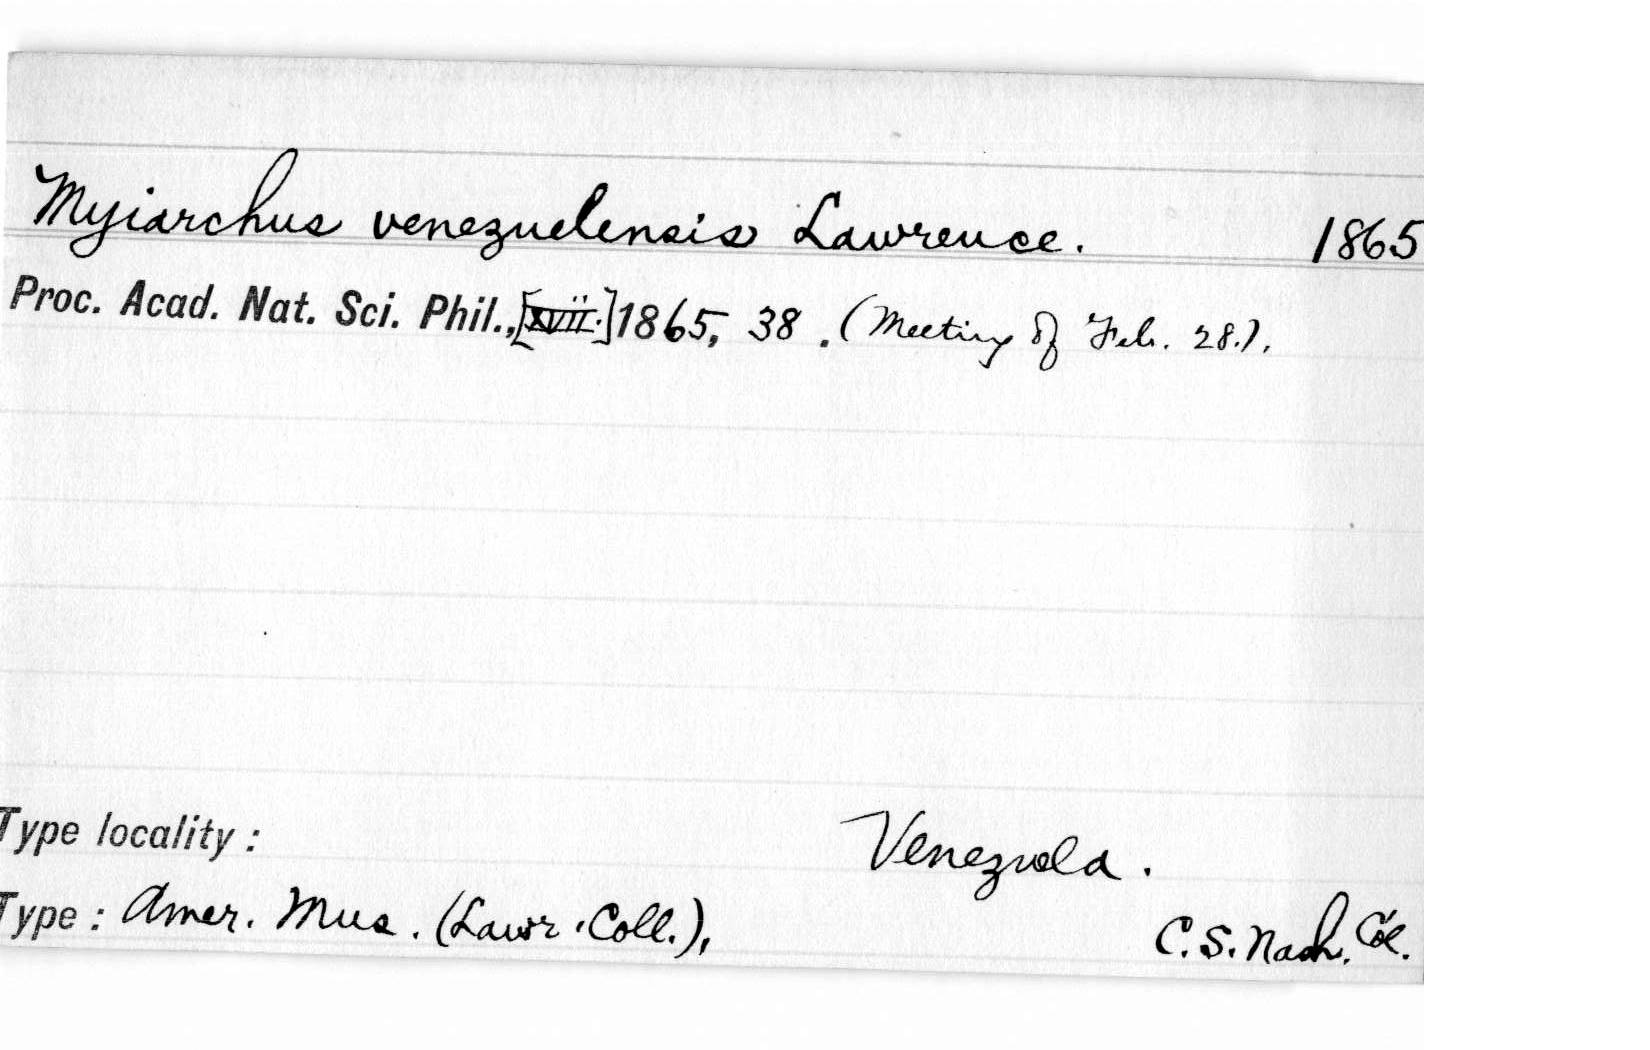 Myiarchus venezuelensis Lawrence. 1865
Proc. Acad. Nat. Sci. Phil., [xvii.] 1865, 38. (Meeting of Feb. 28.).
Type locality: Venezuela.
Type: Amer. Mus. (Lawr. Coll.), C. S. Nash. Col.